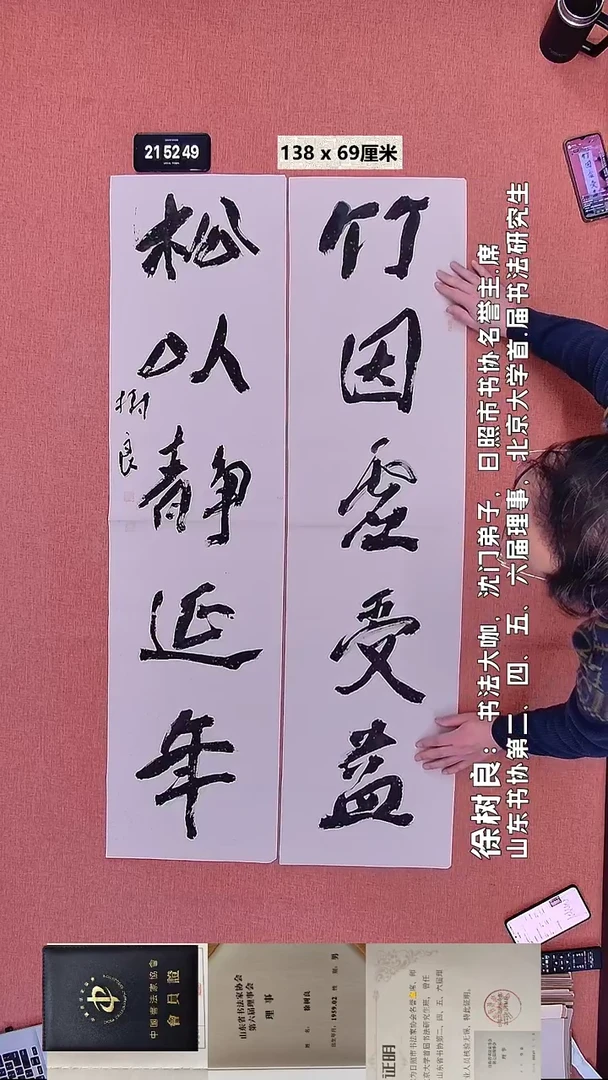 21 52 49
138 x 69厘米
竹因虚受益
松以静延年
树良
徐树良：书法大咖，沈门弟子，日照市书协名誉主.席
山东书协第二、四、五、六届理事，北京大学首.届书法研究生
中国书法家协会
會員證
山东省书法家协会
第六届理事会
理事
姓 名：徐树良
性 别：男
出生年月：1959.02
证明